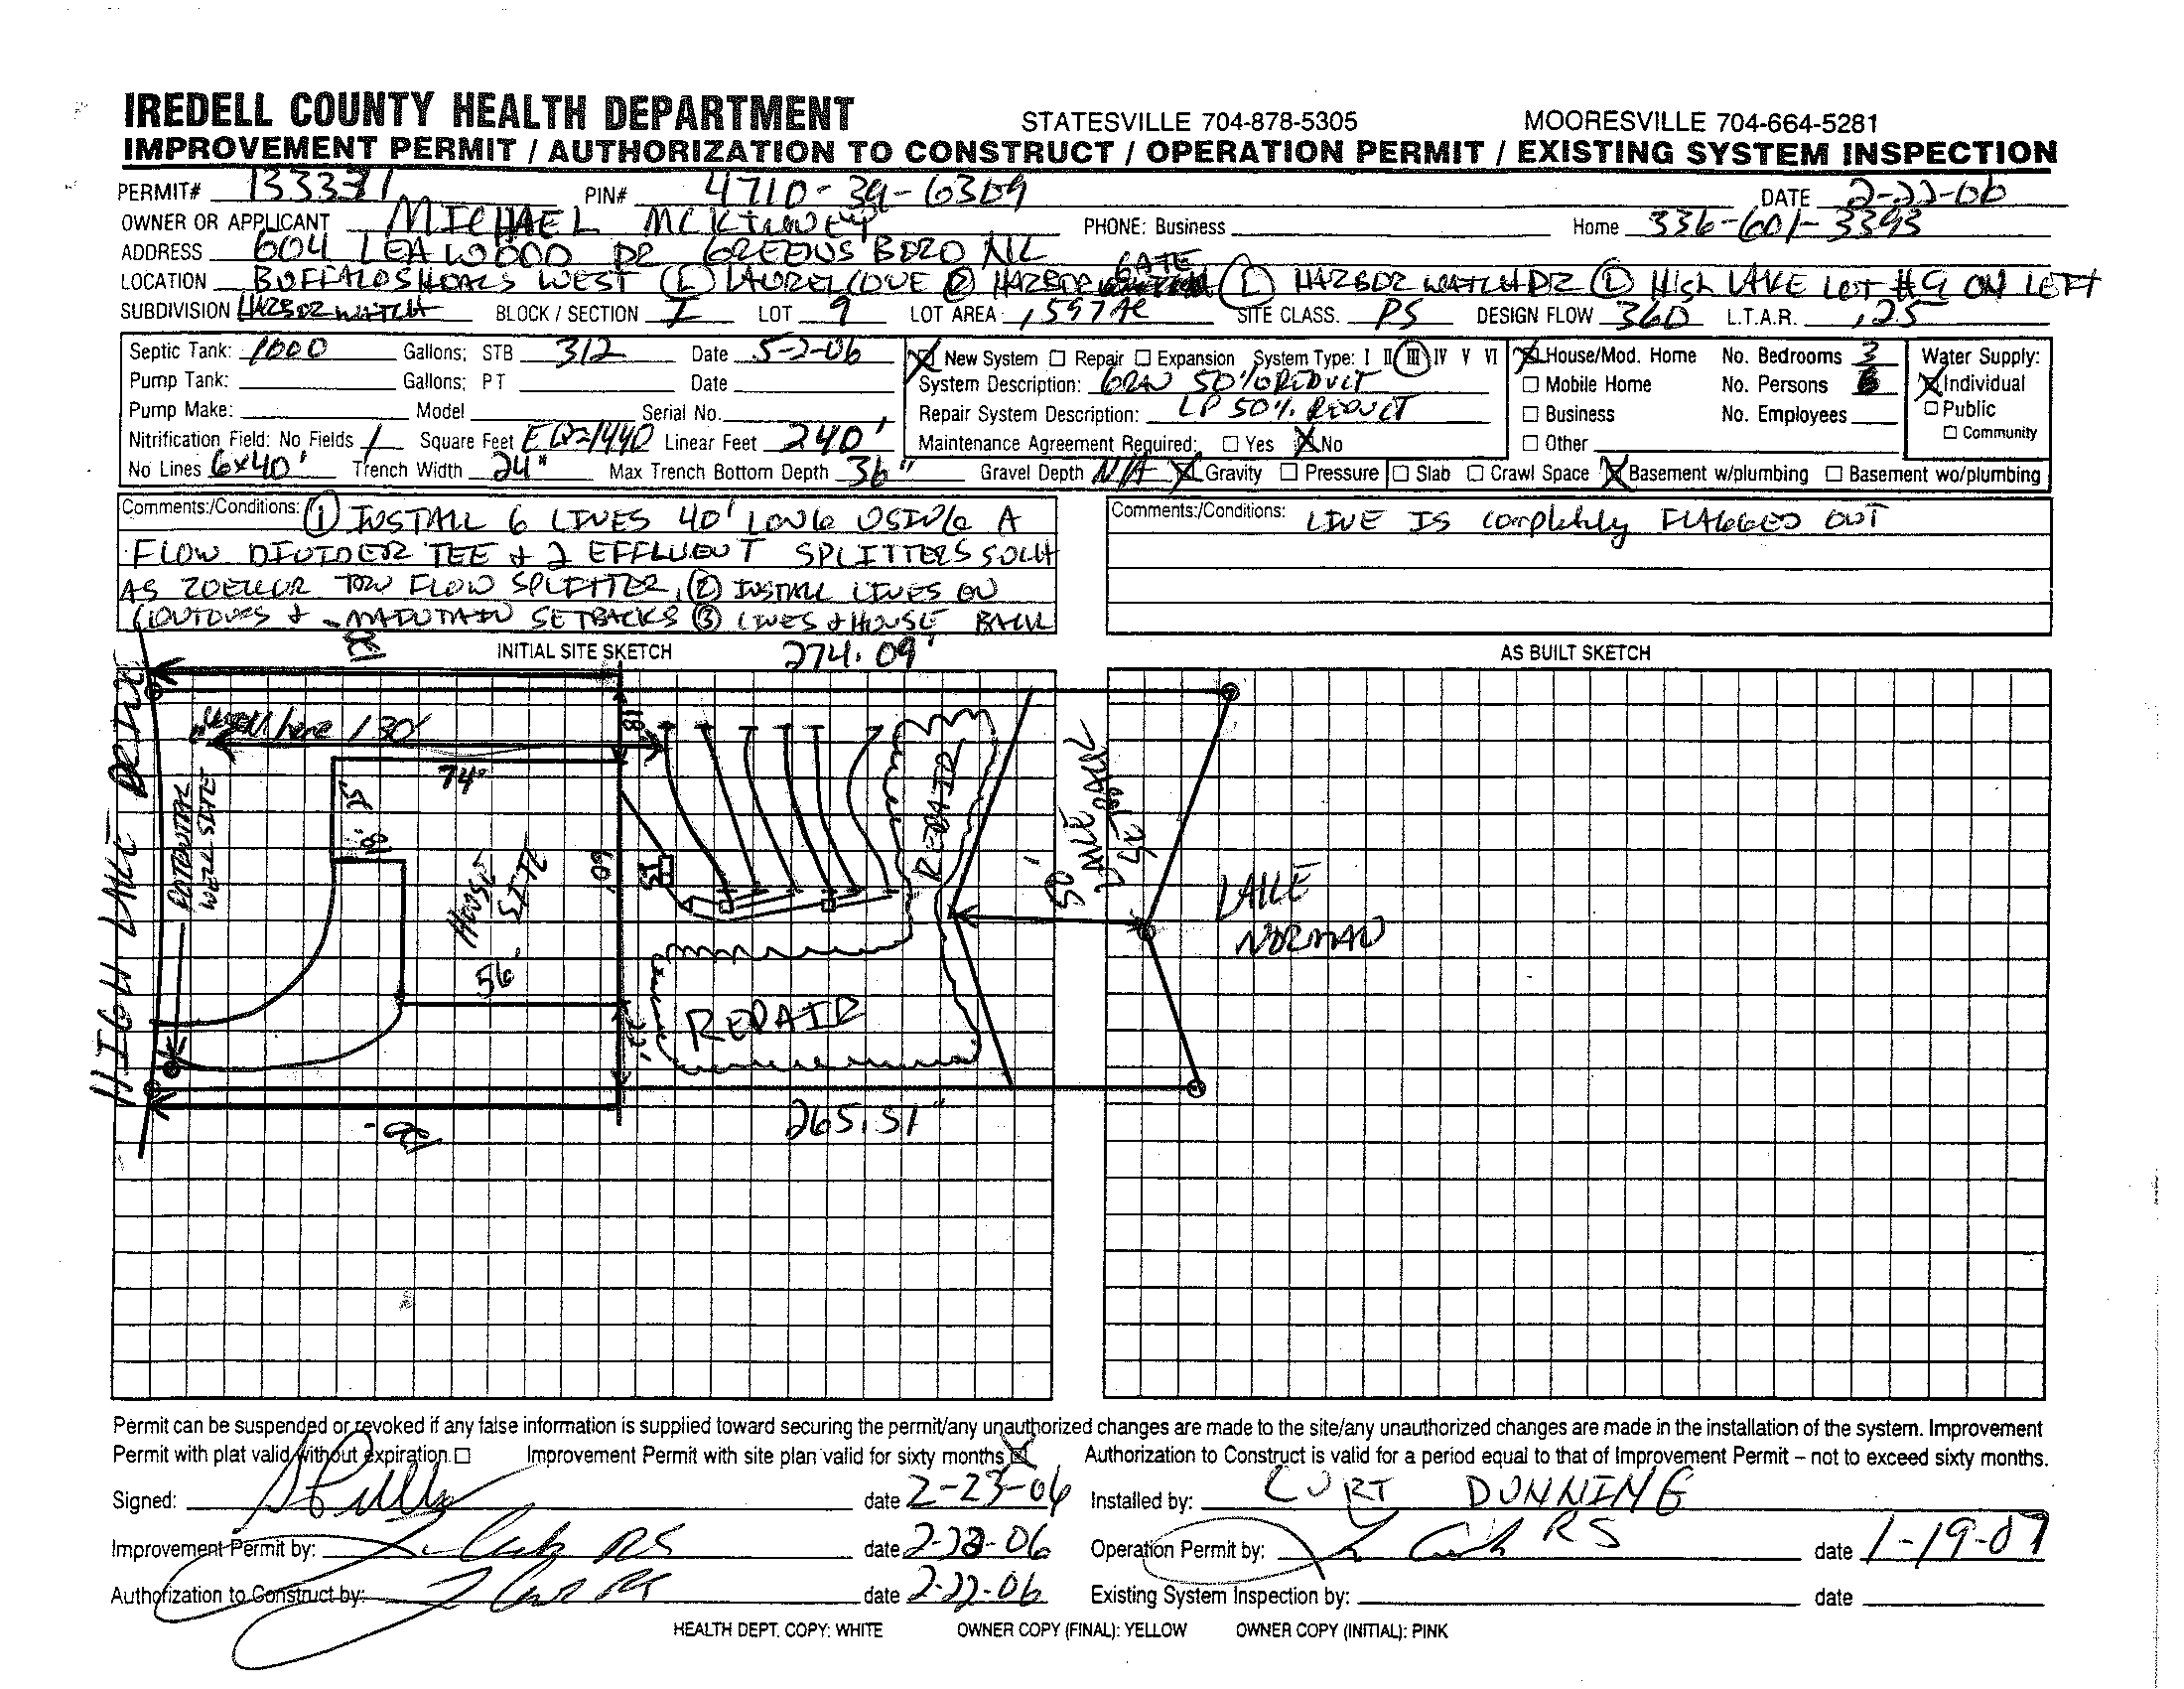 IREDELL COUNTY HEALTH DEPARTMENT STATESVILLE 704-878-5305 MOORESVILLE 704-664-5281
IMPROVEMENT PERMIT / AUTHORIZATION TO CONSTRUCT / OPERATION PERMIT / EXISTING SYSTEM INSPECTION
PERMIT# 133371 PIN# 4710-39-6309 DATE 2-22-06
OWNER OR APPLICANT MICHAEL MCKINNEY PHONE: Business Home 336-601-3393
ADDRESS 604 LEAWOOD DR GREENSBORO NC
LOCATION BUFFALO SHOALS WEST (L) LAUREL COVE (R) HARBOR GATE (L) HARBOR WATCH DR (L) HIGH LAKE LOT #9 ON LEFT
SUBDIVISION HARBOR WATCH BLOCK / SECTION I LOT 9 LOT AREA .597 AC SITE CLASS. PS DESIGN FLOW 360 L.T.A.R. .25
Septic Tank: 1000 Gallons; STB 312 Date 5-2-06
Pump Tank: Gallons; PT Date
Pump Make: Model Serial No.
Nitrification Field: No Fields 1 Square Feet EQ=1440 Linear Feet 240'
No Lines 6x40' Trench Width 24" Max Trench Bottom Depth 36" Gravel Depth N/A Gravity Pressure Slab Crawl Space Basement w/plumbing Basement wo/plumbing
New System Repair Expansion System Type: I II III IV V VI
System Description: GRAV 50% REDUCT
Repair System Description: LP 50% REDUCT
Maintenance Agreement Required: Yes No
House/Mod. Home No. Bedrooms 3
Mobile Home No. Persons
Business No. Employees
Other
Water Supply:
Individual
Public
Community
Comments:/Conditions: (1) INSTALL 6 LINES 40' LONG USING A
FLOW DIVIDER TEE & 2 EFFLUENT SPLITTERS SUCH
AS ZOELLER TRU FLOW SPLITTER. (2) INSTALL LINES ON
CONTOURS & MAINTAIN SETBACKS (3) LINES & HOUSE BACK
Comments:/Conditions: LINE IS completely FLAGGED OUT
INITIAL SITE SKETCH 274.09'
AS BUILT SKETCH
HIGH LAKE DRIVE
well here 130'
POTENTIAL
WELL SITE
74'
25'
18'
60'
HOUSE
SITE
56'
22'
ST
REPAIR
REPAIR
50' LAKE BACK
SETBACK
LAKE
NORMAN
265.51'
Permit can be suspended or revoked if any false information is supplied toward securing the permit/any unauthorized changes are made to the site/any unauthorized changes are made in the installation of the system. Improvement
Permit with plat valid without expiration. Improvement Permit with site plan valid for sixty months Authorization to Construct is valid for a period equal to that of Improvement Permit – not to exceed sixty months.
Signed: date 2-23-06 Installed by: CURT DUNNING
Improvement Permit by: RS date 2-22-06 Operation Permit by: RS date 1-19-07
Authorization to Construct by: RS date 2-22-06 Existing System Inspection by: date
HEALTH DEPT. COPY: WHITE OWNER COPY (FINAL): YELLOW OWNER COPY (INITIAL): PINK